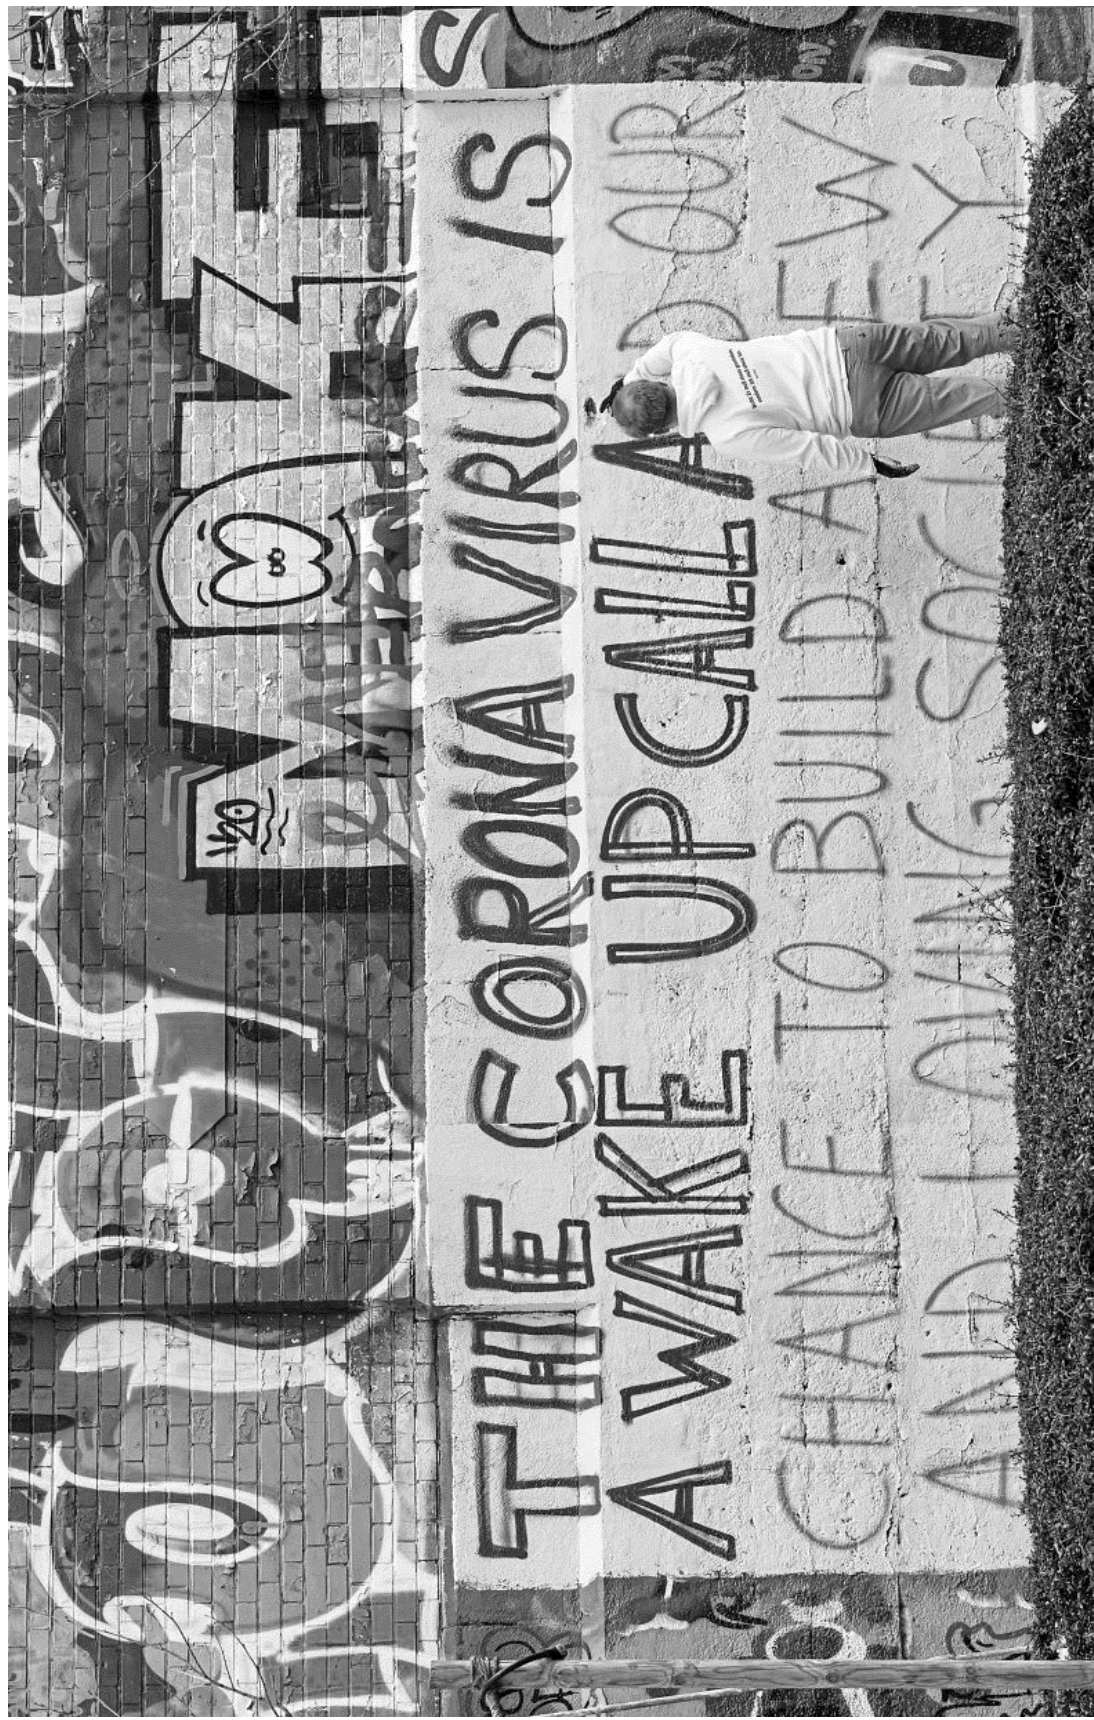 '20
THE CORONA VIRUS IS
A WAKE UP CALL AND OUR
CHANCE TO BUILD A NEW
AND LOVING SOCIETY